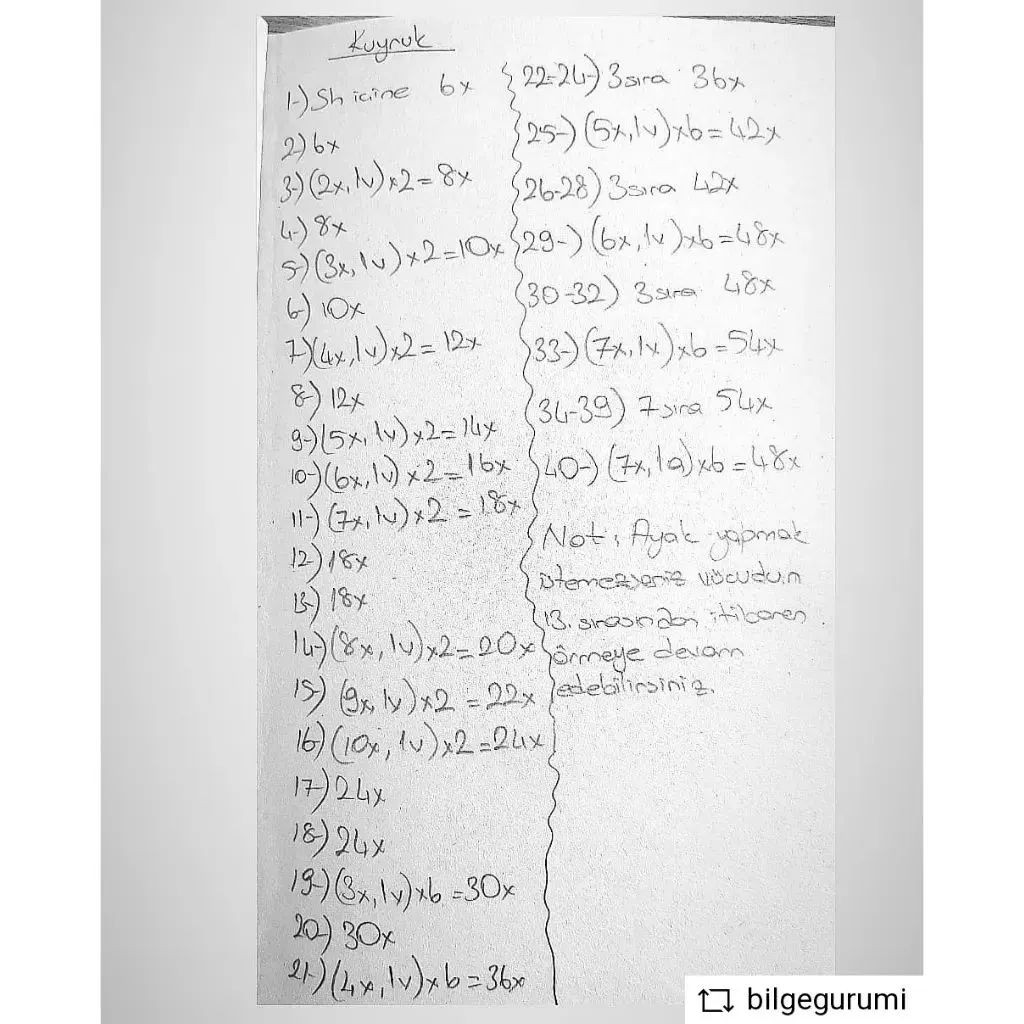 Kuyruk
1-) Sh icine 6x
2) 6x
3-) (2x, 1v) x2 = 8x
4-) 8x
5-) (3x, 1v) x2 = 10x
6-) 10x
7-) (4x, 1v) x2 = 12x
8-) 12x
9-) (5x, 1v) x2 = 14x
10-) (6x, 1v) x2 = 16x
11-) (7x, 1v) x2 = 18x
12-) 18x
13-) 18x
14-) (8x, 1v) x2 = 20x
15-) (9x, 1v) x2 = 22x
16-) (10x, 1v) x2 = 24x
17-) 24x
18-) 24x
19-) (3x, 1v) x6 = 30x
20-) 30x
21-) (4x, 1v) x6 = 36x
22-24-) 3 sıra 36x
25-) (5x, 1v) x6 = 42x
26-28) 3 sıra 42x
29-) (6x, 1v) x6 = 48x
30-32) 3 sıra 48x
33-) (7x, 1v) x6 = 54x
34-39) 7 sıra 54x
40-) (7x, 1a) x6 = 48x
Not; Ayak yapmak
istemezseniz vücudun
13. sırasından itibaren
örmeye devam
edebilirsiniz.
bilgegurumi